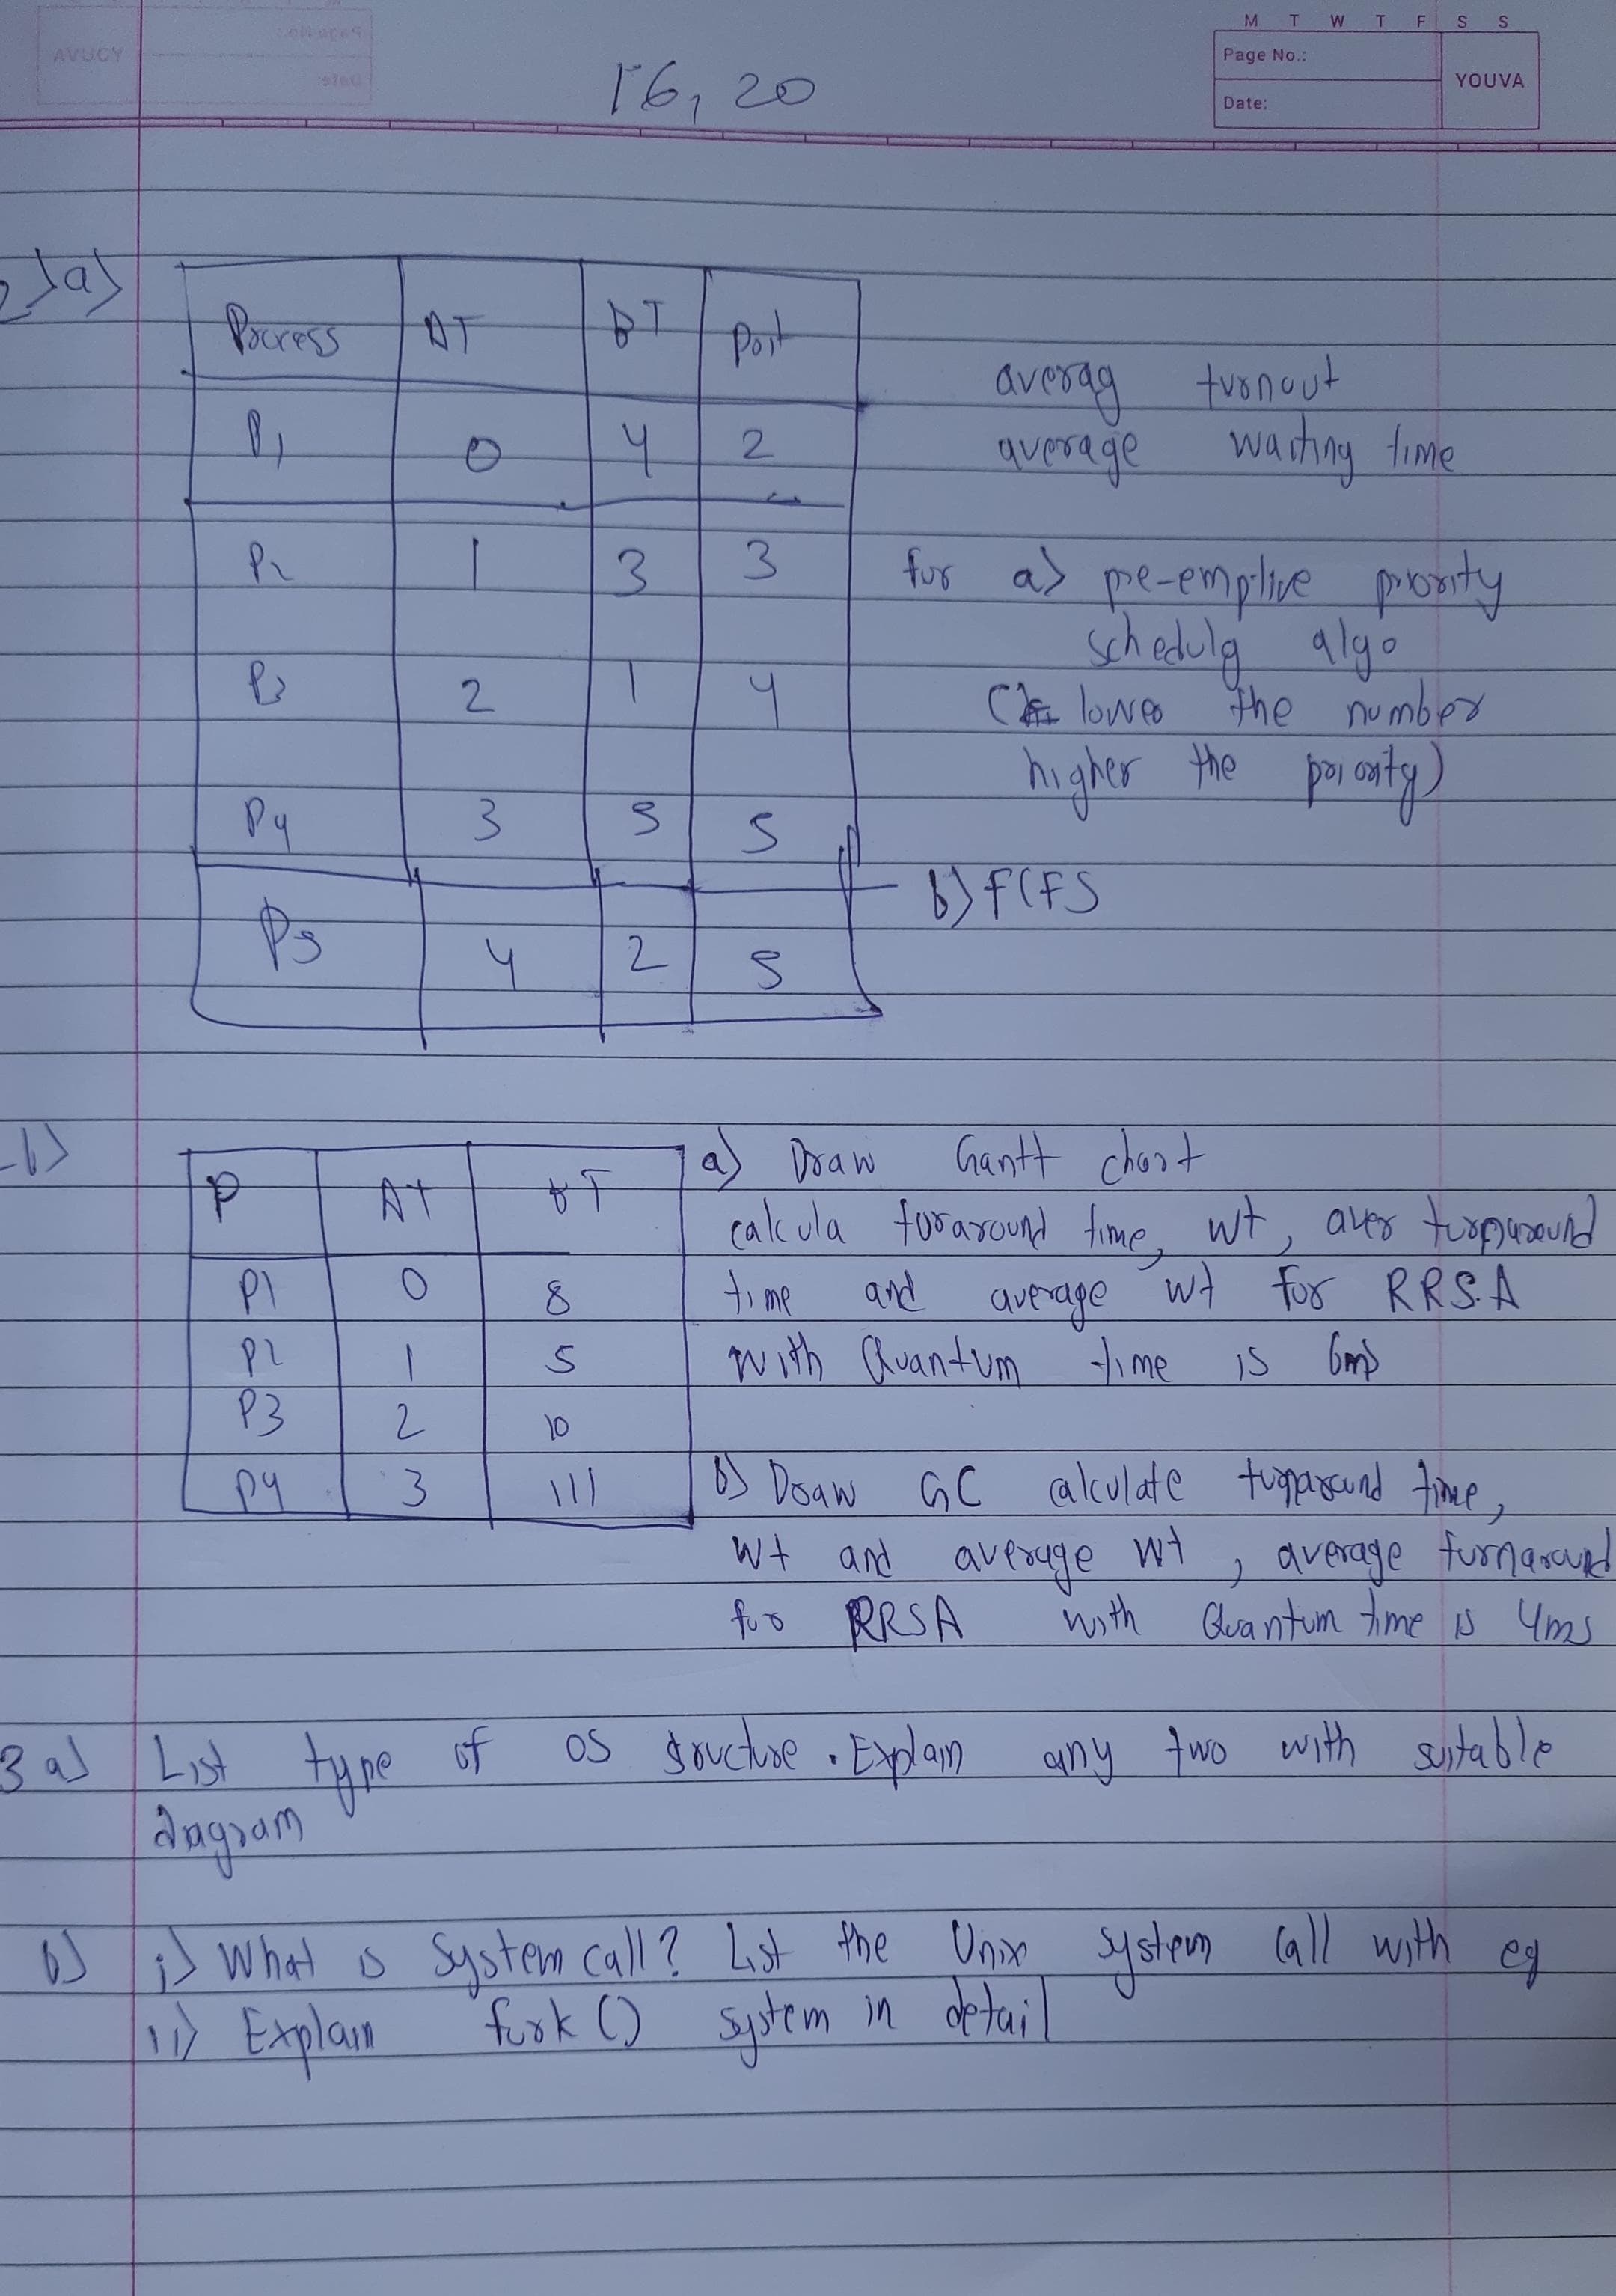 M T W T F S S
Page No.:
YOUVA
Date:
16, 20
2)a)
Process AT BT Port
P1 0 4 2
P2 1 3 3
P3 2 1 4
P4 3 5 5
P5 4 2 5
averag turnout
average waiting time
for a) pre-emptive priority
schedulg algo
( lower the number
higher the priority)
b) FCFS
b)
P AT BT
P1 0 8
P2 1 5
P3 2 10
P4 3 111
a) Draw Gantt chart
calcula turaround time, wt, aver turnaround
time and average wt for RRSA
with Quantum time is 6ms
b) Draw GC calculate turnaround time,
wt and average wt, average turnaround
for RRSA with Quantum time is 4ms
3 a) List type of OS structure. Explain any two with suitable
diagram
b) i) What is System call? List the Unix system call with eg
ii) Explain fork() system in detail